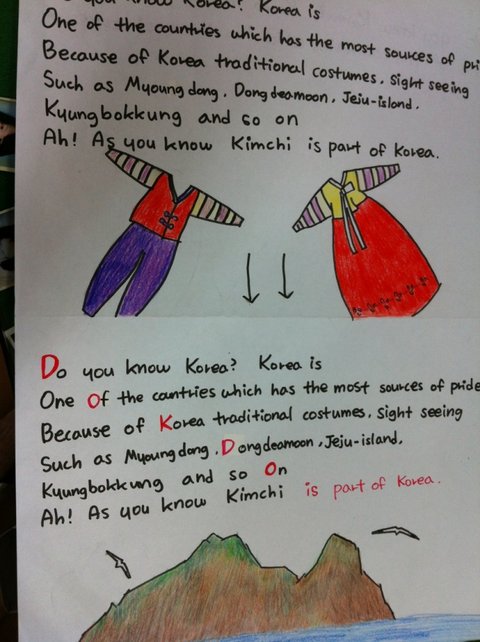 you know Korea? Korea is
One of the countries which has the most sources of pri
Because of Korea traditional costumes, Sight seeing
Such as Myoungdong, Dongdeamoon, Jeju-island,
Kyungbokkung and so on
Ah! As you know Kimchi is part of Korea.
Do you know Korea? Korea is
One Of the countries which has the most sources of pride
Because of Korea traditional costumes, Sight seeing
Such as Myoungdong, Dongdeamoon, Jeju-island,
Kyungbokkung and so On
Ah! As you know Kimchi is part of Korea.